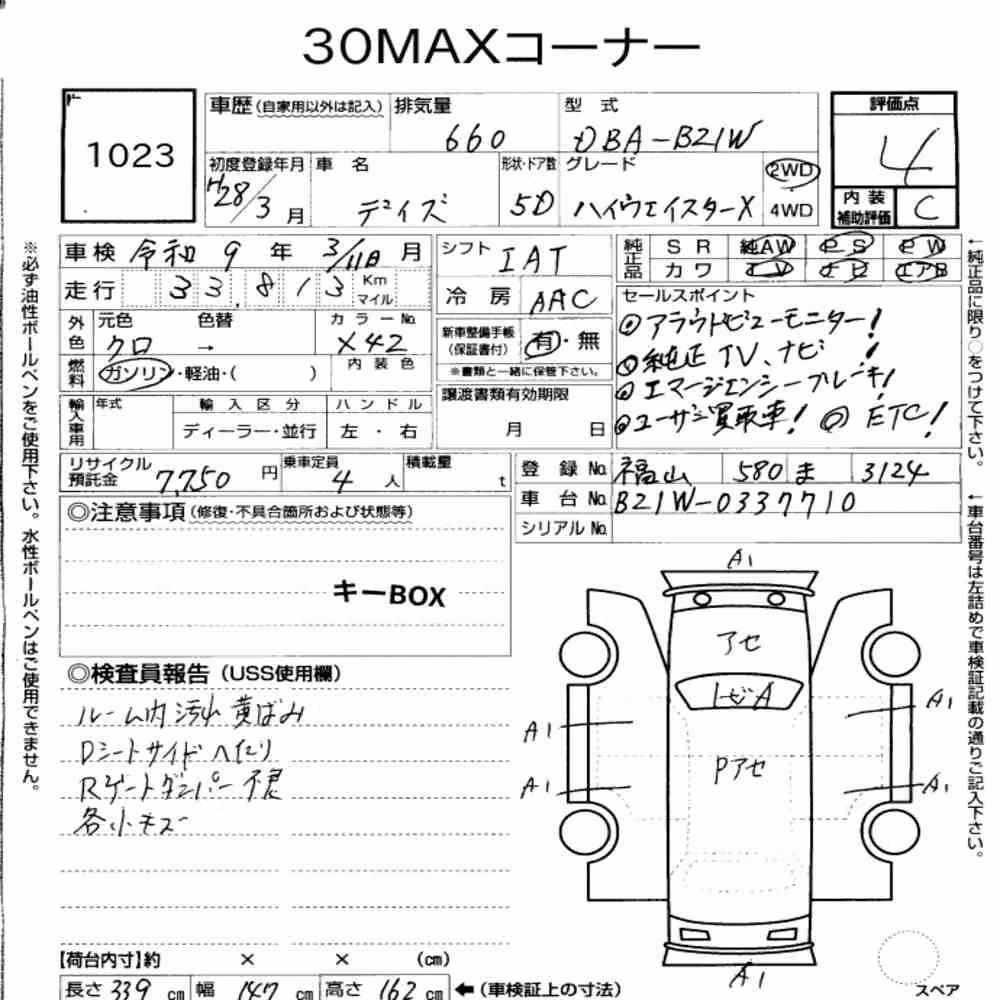 30MAXコーナー
1023
車歴(自家用以外は記入)
排気量
660
型 式
DBA-B21W
評価点
4
内装補助評価
C
初度登録年月
H28/3 月
車 名
デイズ
形状・ドア数
5D
グレード
ハイウェイスターX
2WD
4WD
車検 令和 9 年 3/11日 月
走行 33,813 Km マイル
シフト IAT
冷房 AAC
純正品
SR 純AW PS PW
カワ TV ナビ エアB
外色
元色 クロ
色替 →
カラーNo. X42
燃料 ガソリン・軽油・( )
内 装 色
新車整備手帳(保証書付) 有・無
※書類と一緒に保管下さい。
セールスポイント
◎アラウンドビューモニター!
◎純正TV、ナビ!
◎エマージェンシーブレーキ!
◎ユーザー買取車! ◎ETC!
輸入車用
年式
輸 入 区 分
ディーラー・並行
ハンドル
左・右
譲渡書類有効期限
月 日
リサイクル預託金 7,750 円
乗車定員 4 人
積載量 t
登録No. 福山 580 ま 3124
車台No. B21W-0337710
シリアルNo.
◎注意事項(修復・不具合箇所および状態等)
キーBOX
◎検査員報告(USS使用欄)
ルーム内汚れ 黄ばみ
Dシートサイドへたり
Rゲートダンパー不良
各小キズ
A1
アセ
トビA
A1
A1
Pアセ
A1
A1
A1
スペア
【荷台内寸】約 × × (cm)
長さ 339 cm 幅 147 cm 高さ 162 cm ←(車検証上の寸法)
※必ず油性ボールペンをご使用下さい。水性ボールペンはご使用できません。
←純正品に限り○をつけて下さい。
←車台番号は左詰めで車検証記載の通りご記入下さい。